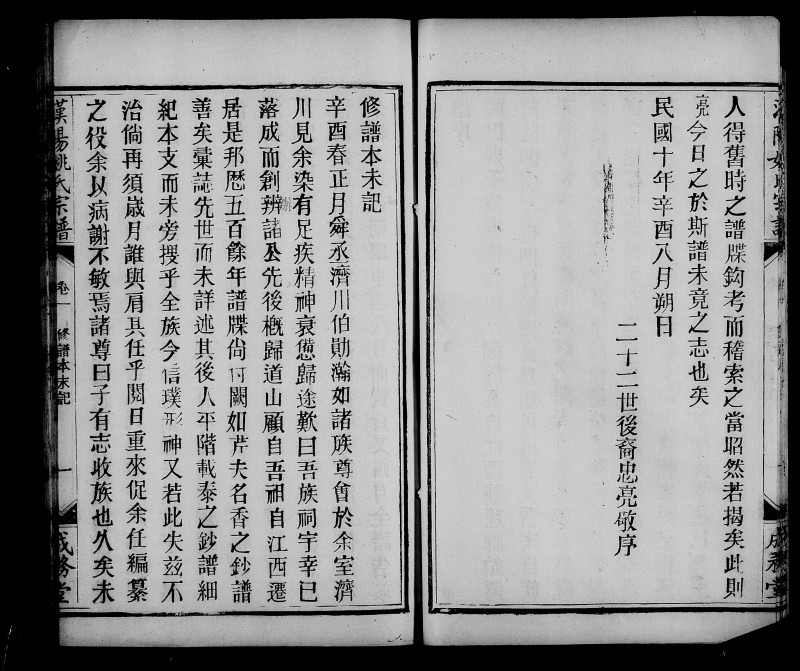 人得舊時之譜牒鈎考而稽索之當昭然若揭矣此則
亮今日之於斯譜未竟之志也矣
民國十年辛酉八月朔日
二十二世後裔忠亮敬序
修譜本末記
辛酉春正月舜丞濟川伯勛瀚如諸族尊會於余室濟
川見余染有足疾精神衰憊歸途歎曰吾族祠宇幸已
落成而創辦諸公先後槪歸道山顧自吾祖自江西遷
居是邦歷五百餘年譜牒尙付闕如芹夫名香之鈔譜
善矣彙誌先世而未詳述其後人平階載泰之鈔譜細
紀本支而未旁搜乎全族今信璞形神又若此失兹不
治倘再須歲月誰與肩其任乎閱日重來促余任編纂
之役余以病謝不敏焉諸尊曰子有志收族也久矣未
漢陽姚氏宗譜
卷一
修譜本末記
一
成務堂